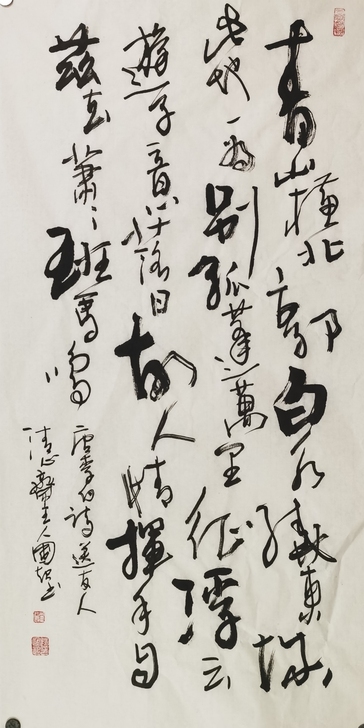 青山橫北郭白水繞東城
此地一為別孤蓬萬里征浮云
遊子意落日故人情揮手自
茲去蕭〻班馬鳴
唐李白詩送友人
清心齋主人書